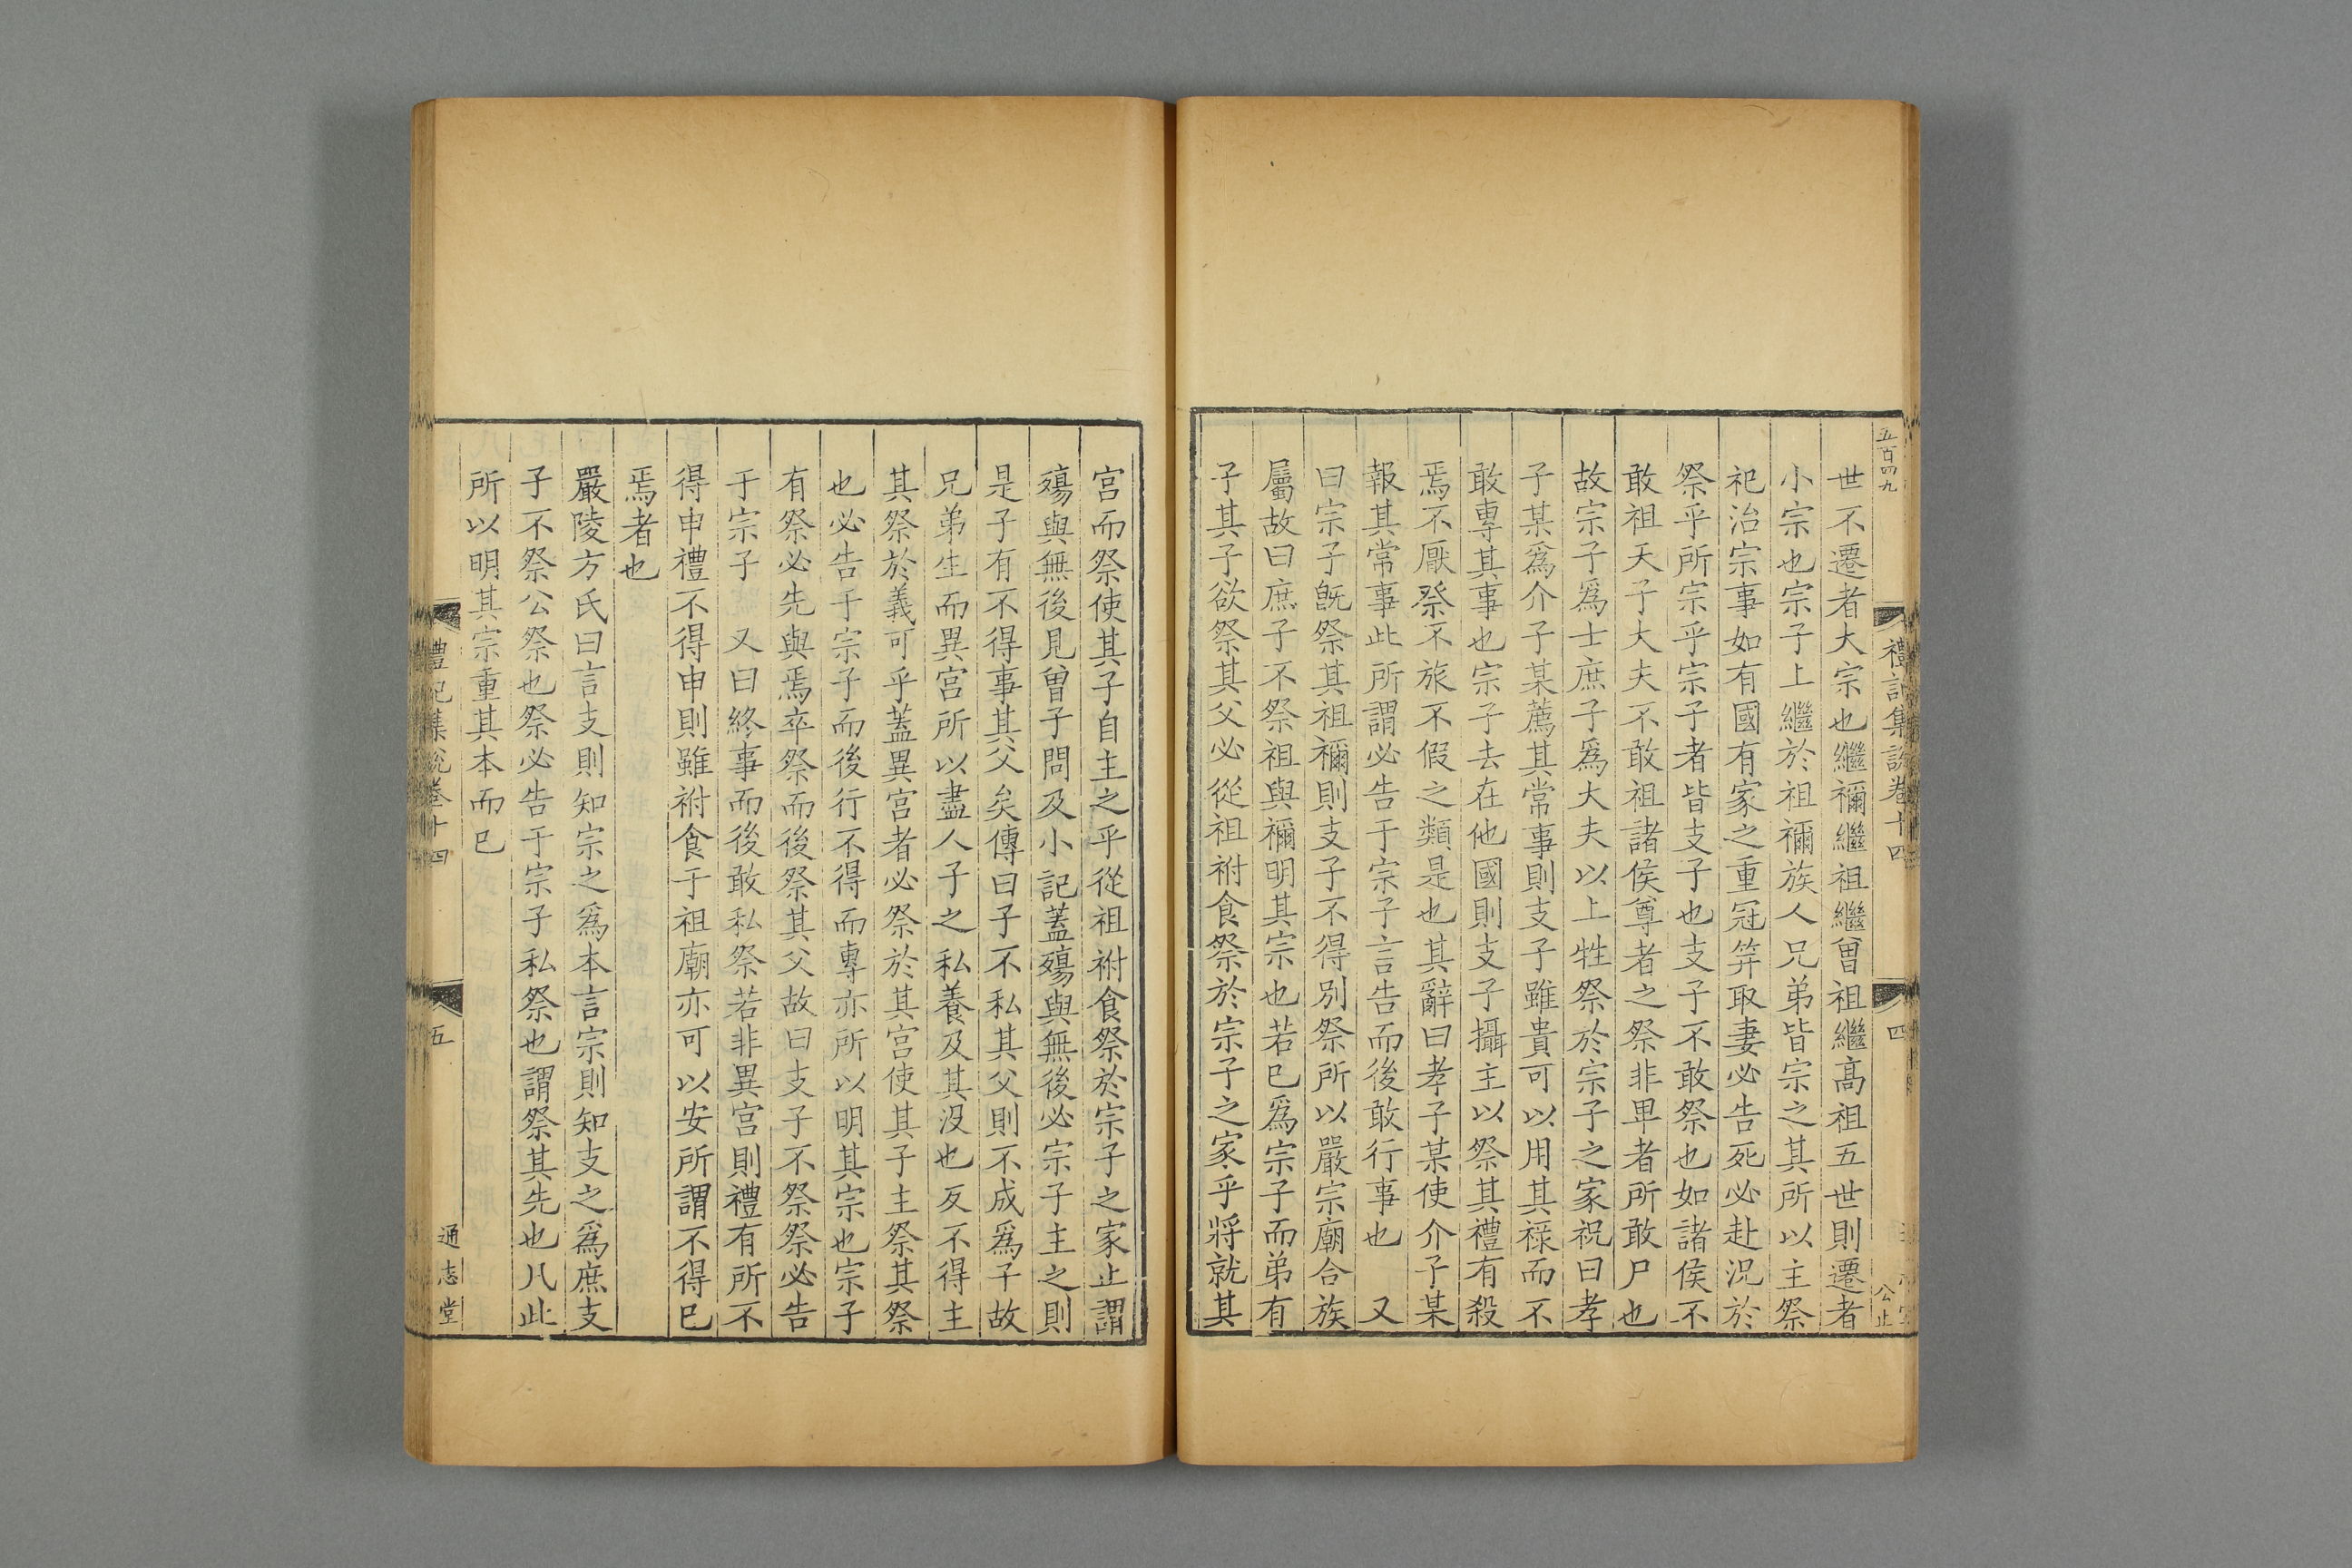 五百四九
禮記集說卷十四
四
公止
世不遷者大宗也繼禰繼祖繼曾祖繼高祖五世則遷者
小宗也宗子上繼於祖禰族人兄弟皆宗之其所以主祭
祀治宗事如有國有家之重冠筓取妻必告死必赴況於
祭乎所宗乎宗子者皆支子也支子不敢祭也如諸侯不
敢祖天子大夫不敢祖諸侯尊者之祭非卑者所敢尸也
故宗子爲士庶子爲大夫以上牲祭於宗子之家祝曰孝
子某爲介子某薦其常事則支子雖貴可以用其祿而不
敢專其事也宗子去在他國則支子攝主以祭其禮有殺
焉不厭祭不旅不假之類是也其辭曰孝子某使介子某
報其常事此所謂必告于宗子言告而後敢行事也 又
曰宗子旣祭其祖禰則支子不得別祭所以嚴宗廟合族
屬故曰庶子不祭祖與禰明其宗也若已爲宗子而弟有
子其子欲祭其父必從祖祔食祭於宗子之家乎將就其
宮而祭使其子自主之乎從祖祔食祭於宗子之家止謂
殤與無後見曾子問及小記蓋殤與無後必宗子主之則
是子有不得事其父矣傳曰子不私其父則不成爲子故
兄弟生而異宮所以盡人子之私養及其没也反不得主
其祭於義可乎蓋異宮者必祭於其宮使其子主祭其祭
也必告于宗子而後行不得而專亦所以明其宗也宗子
有祭必先與焉卒祭而後祭其父故曰支子不祭祭必告
于宗子 又曰終事而後敢私祭若非異宮則禮有所不
得申禮不得申則雖祔食于祖廟亦可以安所謂不得已
焉者也
嚴陵方氏曰言支則知宗之爲本言宗則知支之爲庶支
子不祭公祭也祭必告于宗子私祭也謂祭其先也凡此
所以明其宗重其本而已
禮記集說卷十四
五
通志堂